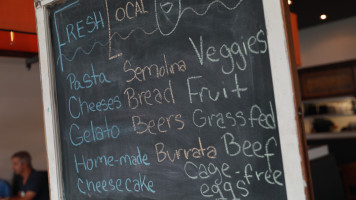 Fresh Local
Pasta Semolina Veggies
Cheeses Bread Fruit
Gelato Beers Grassfed
Home-made Burrata Beef
cheesecake Cage-free
eggs